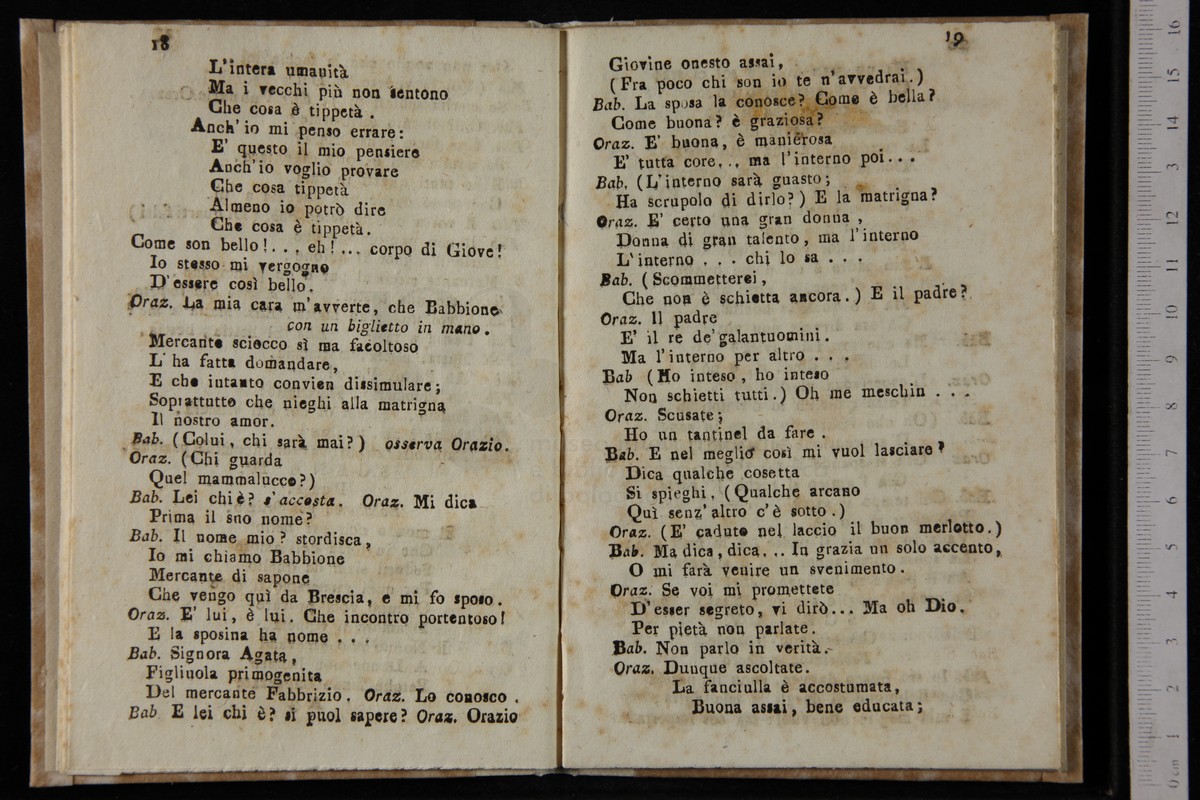 18
L'intera umanità
Ma i vecchi più non sentono
Che cosa è tippetà .
Anch' io mi penso errare:
E' questo il mio pensiere
Anch'io voglio provare
Che cosa tippetà
Almeno io potrò dire
Che cosa è tippetà.
Come son bello!. . . eh! ... corpo di Giove!
Io stesso mi vergogno
D'essere così bello.
Oraz. La mia cara m'avverte, che Babbione
con un biglietto in mano.
Mercante sciocco sì ma facoltoso
L' ha fatta domandare,
E che intanto convien dissimulare;
Soprattutto che nieghi alla matrigna
Il nostro amor.
Bab. (Colui, chi sarà mai?) osserva Orazio.
Oraz. (Chi guarda
Quel mammalucco?)
Bab. Lei chi è? s'accosta. Oraz. Mi dica
Prima il suo nome?
Bab. Il nome mio? stordisca,
Io mi chiamo Babbione
Mercante di sapone
Che vengo quì da Brescia, e mi fo sposo.
Oraz. E' lui, è lui. Che incontro portentoso!
E la sposina ha nome . . .
Bab. Signora Agata,
Figliuola primogenita
Del mercante Fabbrizio. Oraz. Lo conosco .
Bab E lei chi è? si puol sapere? Oraz. Orazio
19
Giovine onesto assai,
(Fra poco chi son io te n'avvedrai.)
Bab. La sposa la conosce? Come è bella?
Come buona? è graziosa?
Oraz. E' buona, è manierosa
E' tutta core. . . ma l'interno poi. . .
Bab. (L'interno sarà guasto;
Ha scrupolo di dirlo?) E la matrigna?
Oraz. E' certo una gran donna ,
Donna di gran talento, ma l'interno
L'interno . . . chi lo sa . . .
Bab. (Scommetterei,
Che non è schietta ancora.) E il padre?
Oraz. Il padre
E' il re de' galantuomini.
Ma l'interno per altro . . .
Bab (Ho inteso, ho inteso
Non schietti tutti.) Oh me meschin . . .
Oraz. Scusate;
Ho un tantinel da fare .
Bab. E nel meglio così mi vuol lasciare?
Dica qualche cosetta
Si spieghi, (Qualche arcano
Quì senz' altro c'è sotto .)
Oraz. (E' caduto nel laccio il buon merlotto.)
Bab. Ma dica, dica. .. In grazia un solo accento,
O mi farà venire un svenimento.
Oraz. Se voi mi promettete
D'esser segreto, vi dirò... Ma oh Dio.
Per pietà non parlate.
Bab. Non parlo in verità.
Oraz. Dunque ascoltate.
La fanciulla è accostumata,
Buona assai, bene educata;
0 cm 1 2 3 4 5 6 7 8 9 10 11 12 13 14 15 16